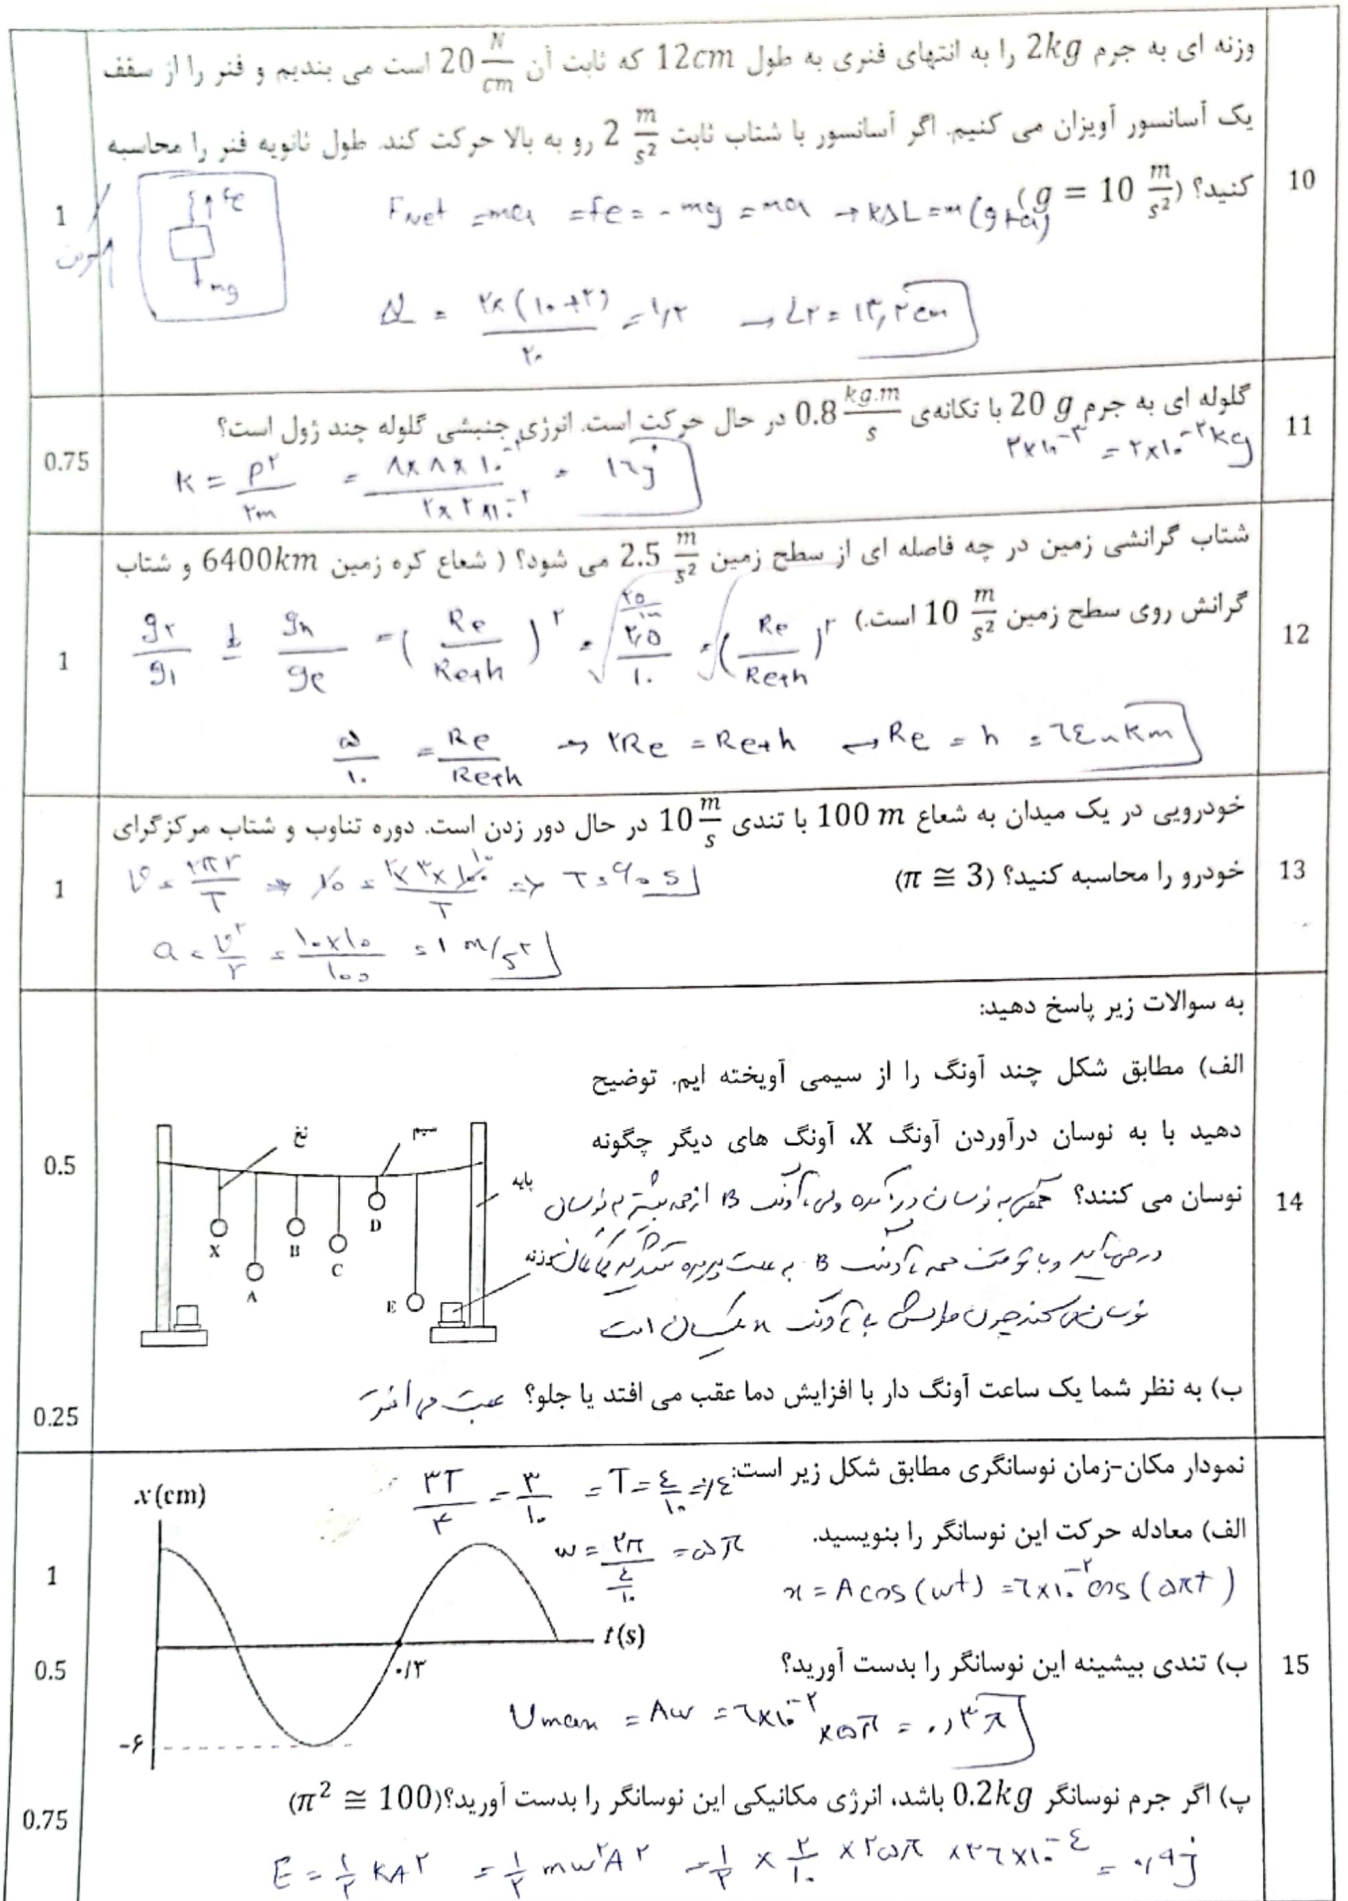 10
وزنه ای به جرم 2kg را به انتهای فنری به طول 12cm که ثابت آن 20 N/cm است می بندیم و فنر را از سقف
یک آسانسور آویزان می کنیم. اگر آسانسور با شتاب ثابت 2 m/s² رو به بالا حرکت کند. طول ثانویه فنر را محاسبه
کنید؟ (g = 10 m/s²)
1
fe
mg
Fnet = ma = fe = - mg = ma → kΔL = m(g+a)
ΔL = ۲×(۱۰+۲) / ۲۰ = ۱,۲ → L۲ = ۱۳,۲ cm
11
گلوله ای به جرم 20 g با تکانه‌ی 0.8 kg.m/s در حال حرکت است. انرژی جنبشی گلوله چند ژول است؟
0.75
= ۲×۱۰⁻² kg
K = P²/۲m = ۸×۸×۱۰⁻² / ۲×۲×۱۰⁻² = ۱۶ j
12
شتاب گرانشی زمین در چه فاصله ای از سطح زمین 2.5 m/s² می شود؟ ( شعاع کره زمین 6400km و شتاب
گرانش روی سطح زمین 10 m/s² است.)
1
g۲/g۱ = gh/ge = (Re/Re+h)² = √۲,۵/۱۰ = √(Re/Re+h)²
۵/۱۰ = Re/Re+h → ۲Re = Re+h → Re = h = ۶۴۰۰ km
13
خودرویی در یک میدان به شعاع 100 m با تندی 10 m/s در حال دور زدن است. دوره تناوب و شتاب مرکزگرای
خودرو را محاسبه کنید؟ (π ≅ 3)
1
V = ۲πr/T ⇒ ۱۰ = ۲×۳×۱۰۰/T ⇒ T = ۶۰ s
a = V²/r = ۱۰×۱۰/۱۰۰ = ۱ m/s²
14
به سوالات زیر پاسخ دهید:
الف) مطابق شکل چند آونگ را از سیمی آویخته ایم. توضیح
دهید با به نوسان درآوردن آونگ X، آونگ های دیگر چگونه
نوسان می کنند؟ همگی به نوسان در آمده ولی آونگ B از همه بیشتر به نوسان
در می آید و با توقف همه آونگ B به علت پدیده تشدید
نوسان می کند چون طولش با آونگ x یکسان است
0.5
نخ
سیم
پایه
وزنه
X
A
B
C
D
E
ب) به نظر شما یک ساعت آونگ دار با افزایش دما عقب می افتد یا جلو؟ عقب می افتد
0.25
15
نمودار مکان-زمان نوسانگری مطابق شکل زیر است:
۳T/۴ = ۳/۱۰ = T = ۴/۱۰ = ۰/۴
الف) معادله حرکت این نوسانگر را بنویسید.
ω = ۲π / ۴/۱۰ = ۵π
x = A cos(ωt) = ۶×۱۰⁻² cos(۵πt)
1
x(cm)
t(s)
۰/۳
-۶
ب) تندی بیشینه این نوسانگر را بدست آورید؟
0.5
Vmax = Aω = ۶×۱۰⁻² × ۵π = ۰,۳π
پ) اگر جرم نوسانگر 0.2kg باشد، انرژی مکانیکی این نوسانگر را بدست آورید؟(π² ≅ 100)
0.75
E = ۱/۲ KA² = ۱/۲ mω²A² = ۱/۲ × ۲/۱۰ × ۲۵π × ۳۶×۱۰⁻⁴ = ۰,۹ j